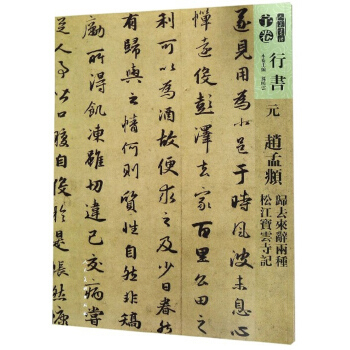 行書
元
趙孟頫
歸去來辭兩種
松江寶雲寺記
遂見用為小邑于時風波未息心
憚遠役彭澤去家百里公田之
利可以為酒故便求之及少日眷然
有歸與之情何則質性自然非矯
厲所得飢凍雖切違己交病嘗
從人事皆口腹自役於是悵然慷